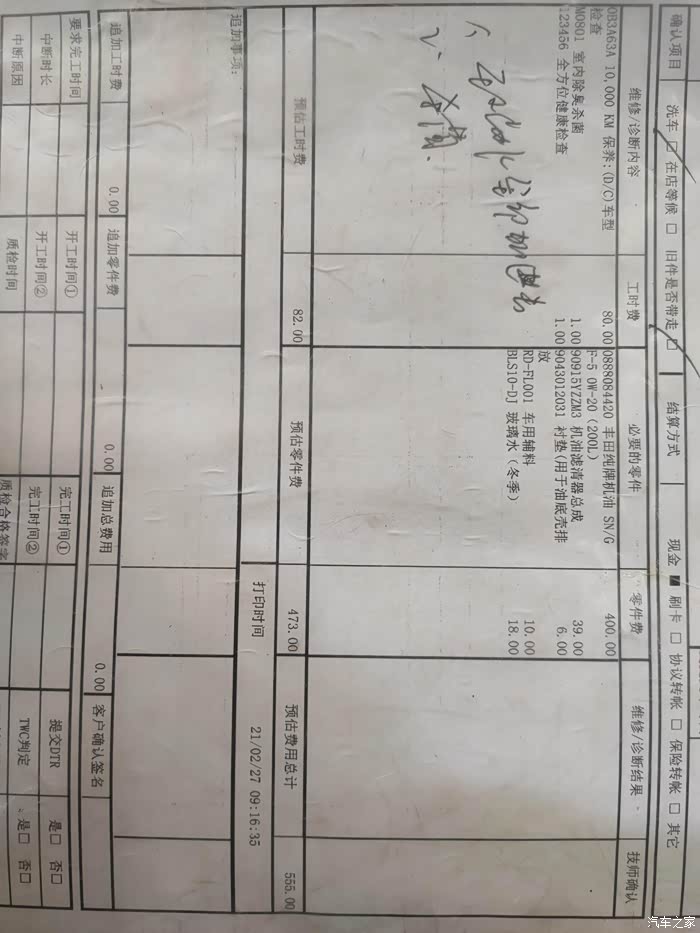 确认项目 洗车 □ 在店等候 □ 旧件是否带走 □ 结算方式 现金 ■ 刷卡 □ 协议转帐 □ 保险转帐 □ 其它
维修/诊断内容 工时费 必要的零件 零件费 维修/诊断结果 技师确认
0B3A63A 10,000 KM 保养:(D/C)车型 80.00 0888084420 丰田纯牌机油 SN/G 400.00
检查 F-5 0W-20 (200L)
M0801 室内除臭杀菌 1.00 90915YZZM3 机油滤清器总成 39.00
123456 全方位健康检查 1.00 9043012031 衬垫(用于油底壳排 6.00
放
RD-FL001 车用辅料 10.00
BLS10-DJ 玻璃水(冬季) 18.00
预估工时费 82.00 预估零件费 473.00 预估费用总计 555.00
打印时间 21/02/27 09:16:35
追加事项:
追加工时费 0.00 追加零件费 0.00 追加总费用 0.00 客户确认签名
要求完工时间 开工时间① 完工时间① 提交DTR 是□ 否□
中断时长 开工时间② 完工时间② TWC判定 是□ 否□
中断原因 质检时间 质检合格签字
汽车之家